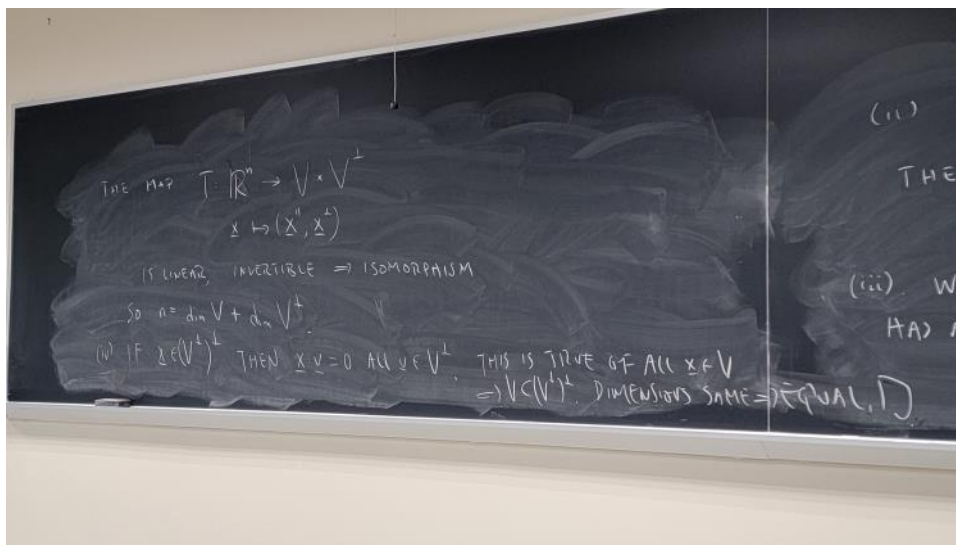 THE MAP T: ℝⁿ → V × V^⊥
x ↦ (x^∥, x^⊥)
IS LINEAR, INVERTIBLE ⇒ ISOMORPHISM
SO n = dim V + dim V^⊥.
(iv) IF x ∈ (V^⊥)^⊥ THEN x·v = 0 ALL v ∈ V^⊥. THIS IS TRUE OF ALL x ∈ V
⇒ V ⊂ (V^⊥)^⊥. DIMENSIONS SAME ⇒ EQUAL. □
(ii)
THE
(iii) W
HAS